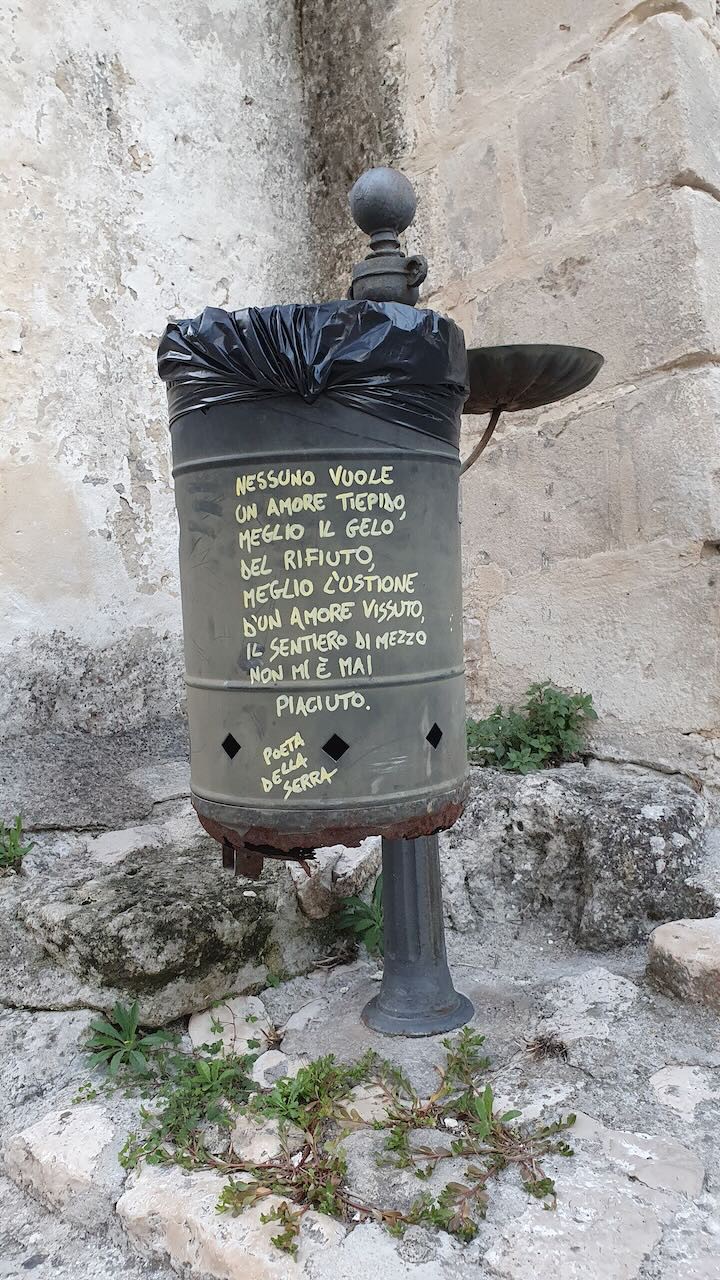 NESSUNO VUOLE
UN AMORE TIEPIDO,
MEGLIO IL GELO
DEL RIFIUTO,
MEGLIO L'USTIONE
D'UN AMORE VISSUTO,
IL SENTIERO DI MEZZO
NON MI È MAI
PIACIUTO.
POETA
DELLA
SERRA